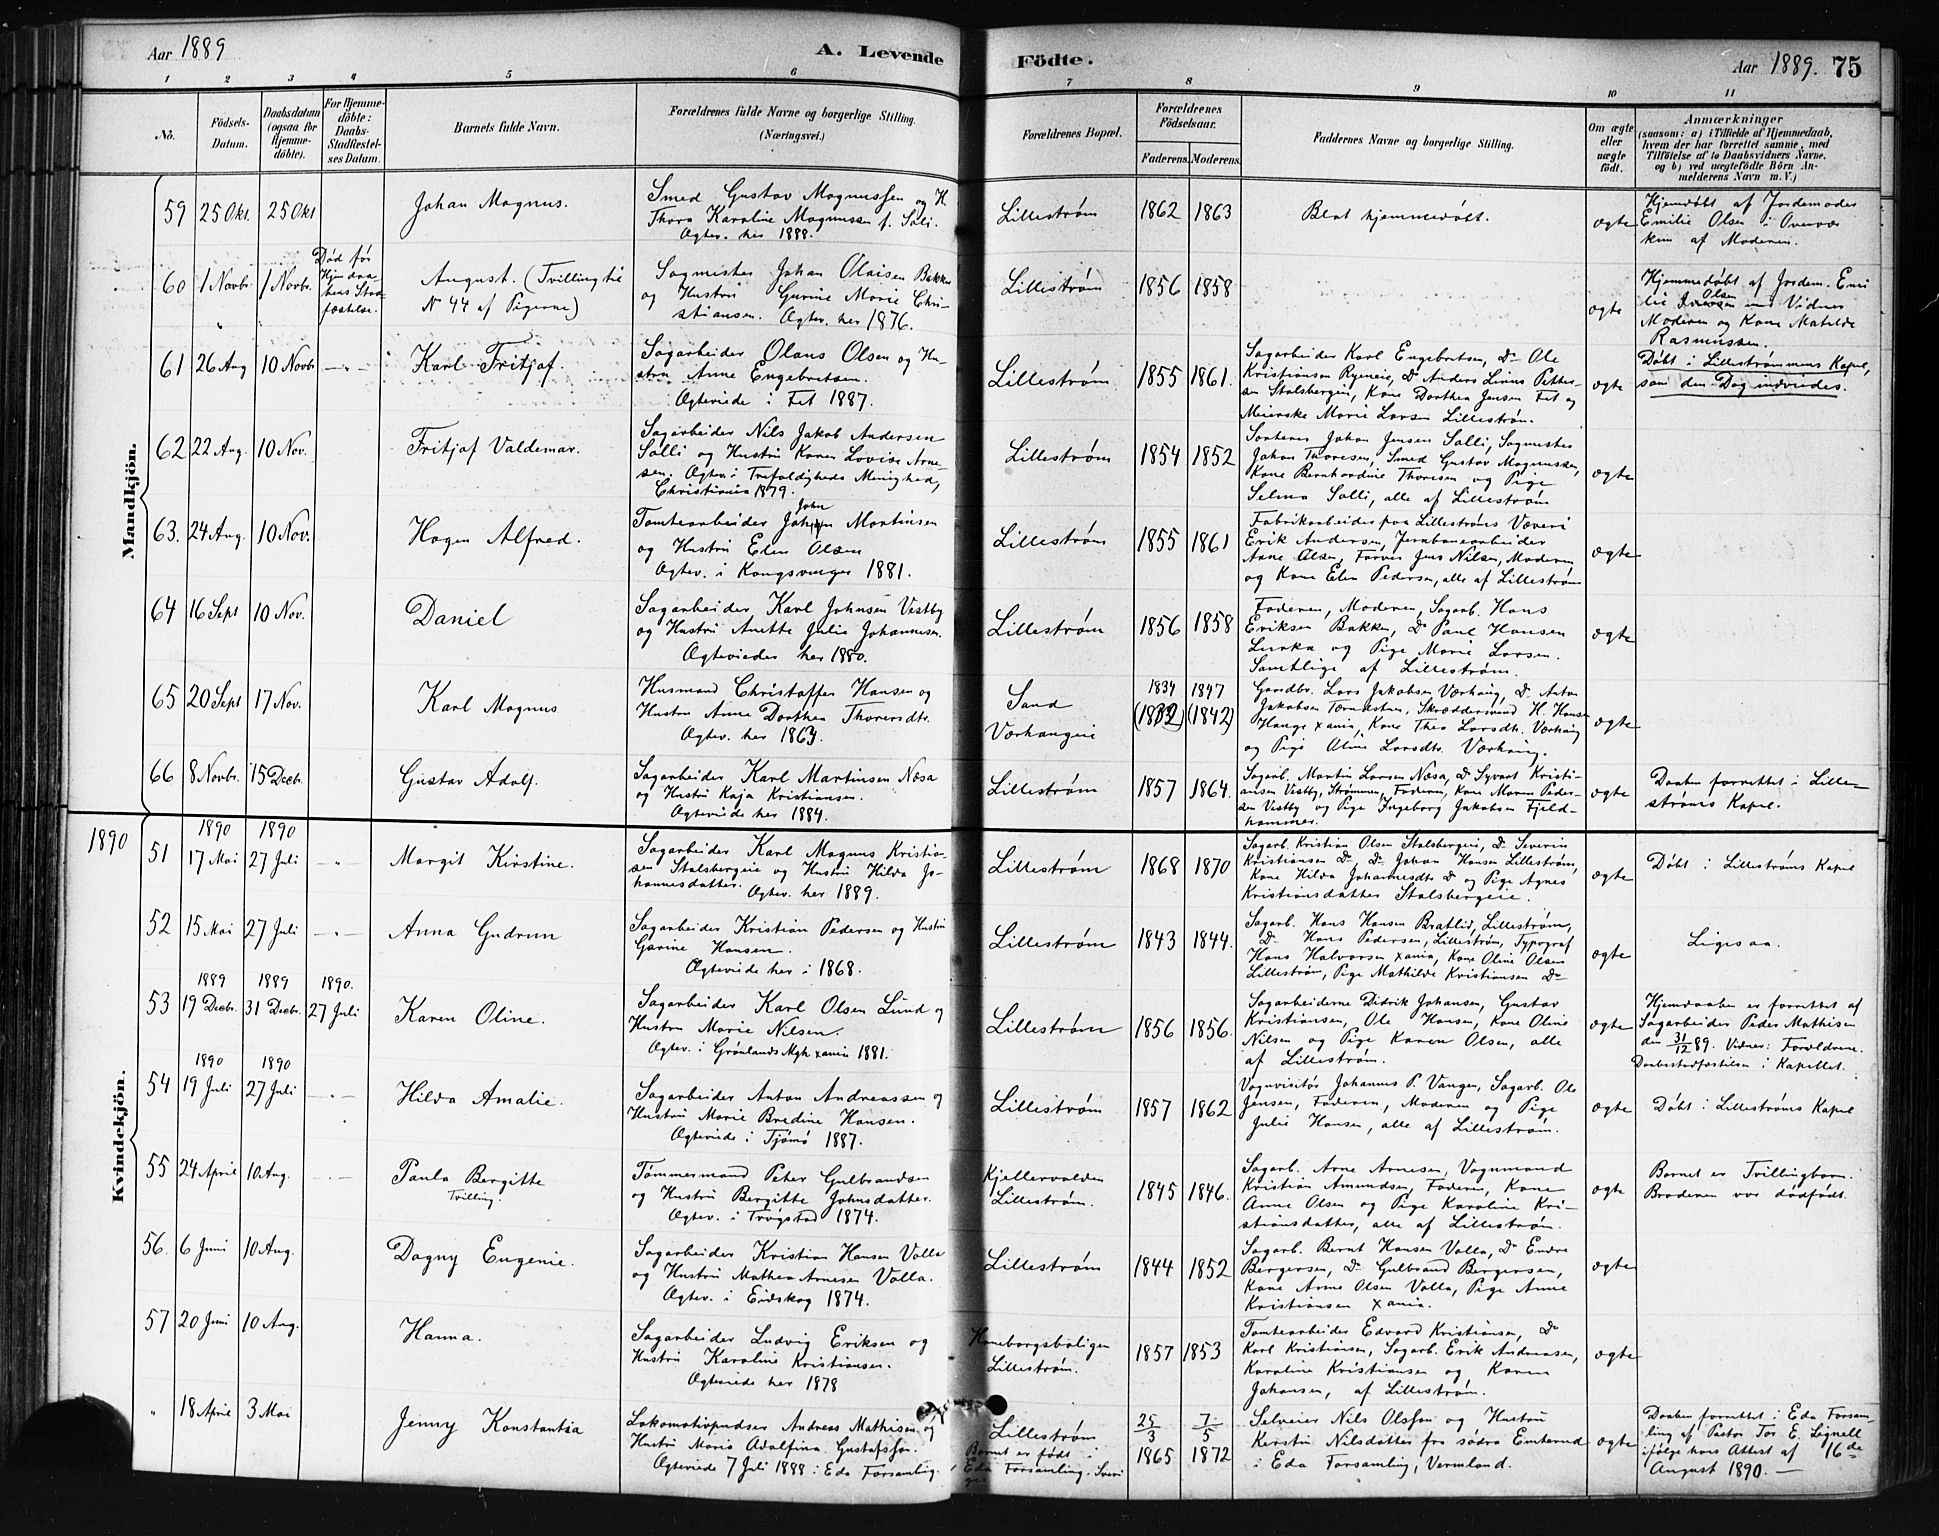 Aar 1889
A. Levende Födte.
Aar 1889. 75
1 2 3 4 5 6 7 8 9 10 11
No.
Födsels-Datum.
Daabsdatum (ogsaa for Hjemmedöbte).
For Hjemmedöbte: Daabs-Stadfæstelses Datum.
Barnets fulde Navn.
Forældrenes fulde Navne og borgerlige Stilling. (Næringsvei.)
Forældrenes Bopæl.
Forældrenes Födselsaar.
Faderens. Moderens.
Faddernes Navne og borgerlige Stilling.
Om ægte eller uægte födt.
Anmærkninger
(saasom: a) i Tilfælde af Hjemmedaab, hvem der har forrettet samme, med Tilföielse af to Daabsvidners Navne, og b) ved uægtefödte Börn Anmelderens Navn m. V.)
Mandkjön.
59 25 Okt. 25 Okt
Johan Magnus.
Smed Gustav Magnussen og H
Thora Karoline Magnussen f. Søli.
Ægtev. her 1888.
Lillestrøm
1862 1863
Blot hjemmedøbt.
ægte
Hjemdøbt af Jordemoder
Emilie Olsen i Overvær
kun af Moderen.
60 1 Novbr. 1 Novbr.
Død før
Hjemdaa-
bens Stad-
fæstelse.
August. (Tvilling til
No 44 af Pigerne)
Sagmester Johan Olaisen Bakken
og Hustru Gurine Marie Chri-
stiansen. Ægtev. her 1876.
Lillestrøm
1856 1858
ægte
Hjemmedøbt af Jordem. Emi-
lie Olsen med Vidner
Moderen og Kone Matilde
Rasmussen.
61 26 Aug 10 Novbr -"-
Karl Fritjof.
Sagarbeider Olaus Olsen og Hu-
stru Anne Engebretsen.
Ægteviede i Fet 1887.
Lillestrøm
1855 1861.
Sagarbeider Karl Engebretsen, Do Ole
Kristiansen Ryeneie, Do Anders Linus Petter-
sen Stalsbergeie, Kone Dorthea Jensen Fet og
Meierske Marie Larsen Lillestrøm.
ægte
Døbt i Lillestrømmens Kapel,
som den Dag indviedes.
62 22 Aug. 10 Nov.
Fritjof Valdemar.
Sagarbeider Nils Jakob Andersen
Sølli og Hustru Karen Lovise Arne-
sen. Ægtev. i Trefoldigheds Menighed,
Christiania 1879.
Lillestrøm
1854 1852
Sorterer Johan Jensen Sølli, Sagmester
Johan Thoresen, Smed Gustav Magnussen,
Kone Bernhardine Thoresen og Pige
Selma Sølli, alle af Lillestrøm
ægte
63. 24 Aug. 10 Nov.
Hagen Alfred.
John
Tomtearbeider Johan Martinsen
og Hustru Elen Olsen
Ægtev. i Kongsvinger 1881.
Lillestrøm
1855 1861
Fabrikarbeider paa Lillestrøms Væveri
Erik Andersen, Jernbanearbeider
Arne Olsen, Farver Jens Nilsen, Moderen
og Kone Elen Pedersen, alle af Lillestrøm
ægte
64 16 Sept 10 Nov.
Daniel
Sagarbeider Karl Johnsen Vestby
og Hustru Anette Julie Johannesen.
Ægteviedes her 1880.
Lillestrøm
1856 1858
Faderen, Moderen, Sagarb. Hans
Eriksen Bakken, Do Paul Hansen
Lurka og Pige Marie Larsen.
Samtlige af Lillestrøm.
ægte
65 20 Sept 17 Nov.
Karl Magnus
Husmand Christoffer Hansen og
Hustru Anne Dorthea Thorersdtr.
Ægtev. her 1863.
Sand
Værhaugeie
1834 1847
(1832) (1842)
Gaardbr. Lars Jakobsen Værhaug, Do Anton
Jakobsen Tærnestuen, Skræddersvend H. Hansen
Hauge Xania, Kone Thea Larsdtr. Værhaug
og Pige Aline Larsdtr. Værhaug.
ægte
66 8 Novbr. 15 Decbr.
Gustav Adolf.
Sagarbeider Karl Martinsen Næsa
og Hustru Kaja Kristiansen.
Ægteviede her 1884.
Lillestrøm
1857 1864.
Sagarb. Martin Larsen Næsa, Do Syvert Kristi-
ansen Vestby, Strømmen, Faderen, Kone Maren Peder-
sen Vestby og Pige Ingeborg Jakobsen Fjeld-
hammer.
ægte
Daaben forrettet i Lille-
strøms Kapel.
1890
Kvindekjön.
1890 1890
51 17 Mai 27 Juli -"-
Margit Kirstine.
Sagarbeider Karl Magnus Kristian-
sen Stalsbergeie og Hustru Hilda Jo-
hannesdatter.
Ægtev. her 1889.
Lillestrøm
1868 1870
Sagarb. Kristian Olsen Stalsbergeie, Do Severin
Kristiansen Do, Do Johan Hansen Lillestrøm,
Kone Hilda Johannesdtr Do og Pige Agnes
Kristiansdatter Stalsbergeie.
ægte
Døbt i Lillestrøms Kapel
52 15 Mai 27 Juli -"-
Anna Gudrun
Sagarbeider Kristian Pedersen og Hustru
Gurine Hansen.
Ægteviede her i 1868.
Lillestrøm
1843 1844.
Sagarb. Hans Hansen Bratlid, Lillestrøm,
Do Hans Pedersen, Lillestrøm, Typograf
Hans Halvorsen Xania, Kone Oline Olsen
Lillestrøm, Pige Mathilde Kristiansen Do
ægte
Ligesaa.
1889 1889 1890.
53 19 Decbr. 31 Decbr. 27 Juli
Karen Oline.
Sagarbeider Karl Olsen Lund og
Hustru Marie Nilsen.
Ægtev. i Grønlands Mgh Xania 1881.
Lillestrøm
1856 1856.
Sagarbeiderne Didrik Johansen, Gustav
Kristiansen, Ole Hansen, Kone Oline
Nilsen og Pige Karen Olsen, alle
af Lillestrøm.
ægte
Hjemdaaben er forrettet af
Sagarbeider Peder Mathisen
den 31/12 89. Vidner: Forældrene.
Daabsstadfæstelsen i Kapellet.
1890 1890
54 19 Juli 27 Juli -"-
Hilda Amalie.
Sagarbeider Anton Andreassen og
Hustru Marie Bredine Hansen.
Ægteviede i Tjømø 1887.
Lillestrøm
1857 1862
Vognvisitør Johannes P. Vangen, Sagarb. Ole
Jensen, Faderen, Moderen og Pige
Julie Hansen, alle af Lillestrøm.
ægte
Døbt i Lillestrøms Kapel
55 24 April 10 Aug. -"-
Paula Bergitte
Tvilling.
Tømmermand Peter Gulbrandsen
og Hustru Bergitte Johnsdatter.
Ægtev. i Trøgstad 1874.
Kjellervolden
Lillestrøm.
1845 1846.
Sagarb. Arne Arnesen, Vognmand
Kristian Amundsen, Faderen, Kone
Anne Olsen og Pige Karoline Kri-
stiansdatter, alle af Lillestrøm.
ægte
Barnet er Tvillingbarn.
Broderen var dødfødt.
56. 6 Juni 10 Aug.
Dagny Eugenie.
Sagarbeider Kristian Hansen Volla
og Hustru Mathea Arnesen Volla.
Ægtev. i Eidskog 1874.
Lillestrøm
1844 1852
Sagarb. Bernt Hansen Volla, Do Endre
Bergersen, Do Gulbrand Bergersen,
Kone Anne Olsen Volla, Pige Anne
Kristiansen Xania.
ægte
57 20 Juni 10 Aug.
Hanna.
Sagarbeider Ludvig Eriksen og
Hustru Karoline Kristiansen.
Ægteviede her 1878
Haneborgsboligen
Lillestrøm.
1857 1853
Tomtearbeider Edvard Kristiansen, Do
Karl Kristiansen, Sagarb. Erik Andreasen,
Karoline Kristiansen og Karen
Johansen, af Lillestrøm.
ægte
" 18 April 3 Mai
Jenny Konstantia
Lokomotivpudser Andreas Mathisen og
Hustru Maria Adolfina Gustafsson.
Ægteviede 7 Juli 1888 i Eda Forsamling.
Lillestrøm
Barnet er født i
Eda Forsamling, Sveri
ge
25/3 1865 7/5 1872
Selveier Nils Olsson og Hustru
Kerstin Nilsdotter fra södra Emterud
i Eda Forsamling, Vermland.
ægte
Daaben forrettet i Eda Forsam-
ling af Pastor Tor E. Lignell
ifølge hans Attest af 16de
August 1890. —